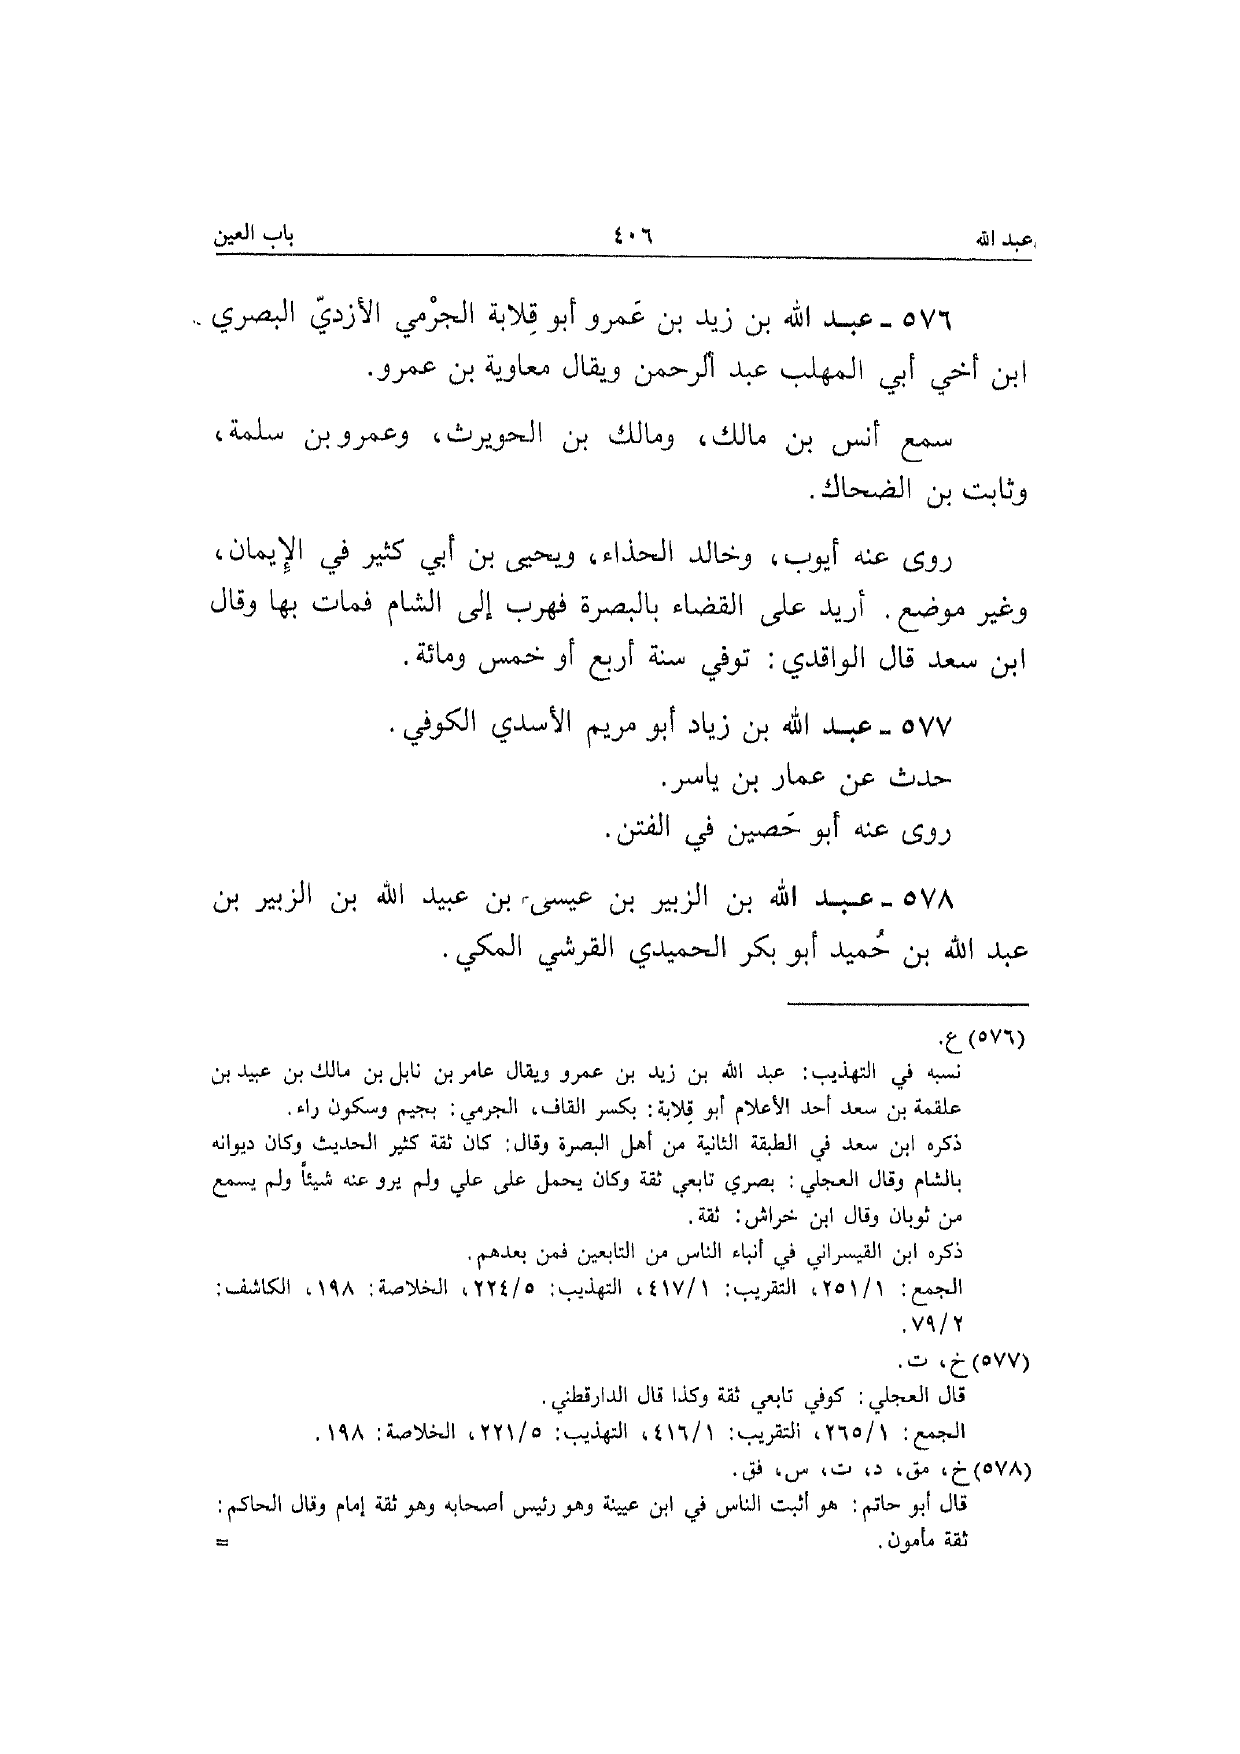 عبد الله ٤٠٦ باب العين
٥٧٦ ـ عبد الله بن زيد بن عَمرو أبو قِلابة الجرْمي الأزديّ البصري
ابن أخي أبي المهلب عبد الرحمن ويقال معاوية بن عمرو.
سمع أنس بن مالك، ومالك بن الحويرث، وعمرو بن سلمة،
وثابت بن الضحاك.
روى عنه أيوب، وخالد الحذاء، ويحيى بن أبي كثير في الإِيمان،
وغير موضع. أريد على القضاء بالبصرة فهرب إلى الشام فمات بها وقال
ابن سعد قال الواقدي: توفي سنة أربع أو خمس ومائة.
٥٧٧ ـ عبد الله بن زياد أبو مريم الأسدي الكوفي.
حدث عن عمار بن ياسر.
روى عنه أبو حَصين في الفتن.
٥٧٨ ـ عبد الله بن الزبير بن عيسى بن عبيد الله بن الزبير بن
عبد الله بن حُميد أبو بكر الحميدي القرشي المكي.
(٥٧٦) ع.
نسبه في التهذيب: عبد الله بن زيد بن عمرو ويقال عامر بن نابل بن مالك بن عبيد بن
علقمة بن سعد أحد الأعلام أبو قِلابة: بكسر القاف، الجرمي: بجيم وسكون راء.
ذكره ابن سعد في الطبقة الثانية من أهل البصرة وقال: كان ثقة كثير الحديث وكان ديوانه
بالشام وقال العجلي: بصري تابعي ثقة وكان يحمل على علي ولم يرو عنه شيئاً ولم يسمع
من ثوبان وقال ابن خراش: ثقة.
ذكره ابن القيسراني في أنباء الناس من التابعين فمن بعدهم.
الجمع: ٢٥١/١، التقريب: ٤١٧/١، التهذيب: ٢٢٤/٥، الخلاصة: ١٩٨، الكاشف:
٧٩/٢.
(٥٧٧) خ، ت.
قال العجلي: كوفي تابعي ثقة وكذا قال الدارقطني.
الجمع: ٢٦٥/١، التقريب: ٤١٦/١، التهذيب: ٢٢١/٥، الخلاصة: ١٩٨.
(٥٧٨) خ، مق، د، ت، س، فق.
قال أبو حاتم: هو أثبت الناس في ابن عيينة وهو رئيس أصحابه وهو ثقة إمام وقال الحاكم:
ثقة مأمون. =